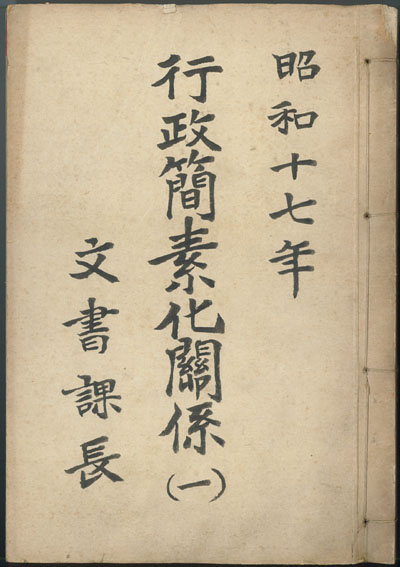 昭和十七年
行政簡素化關係(一)
文書課長